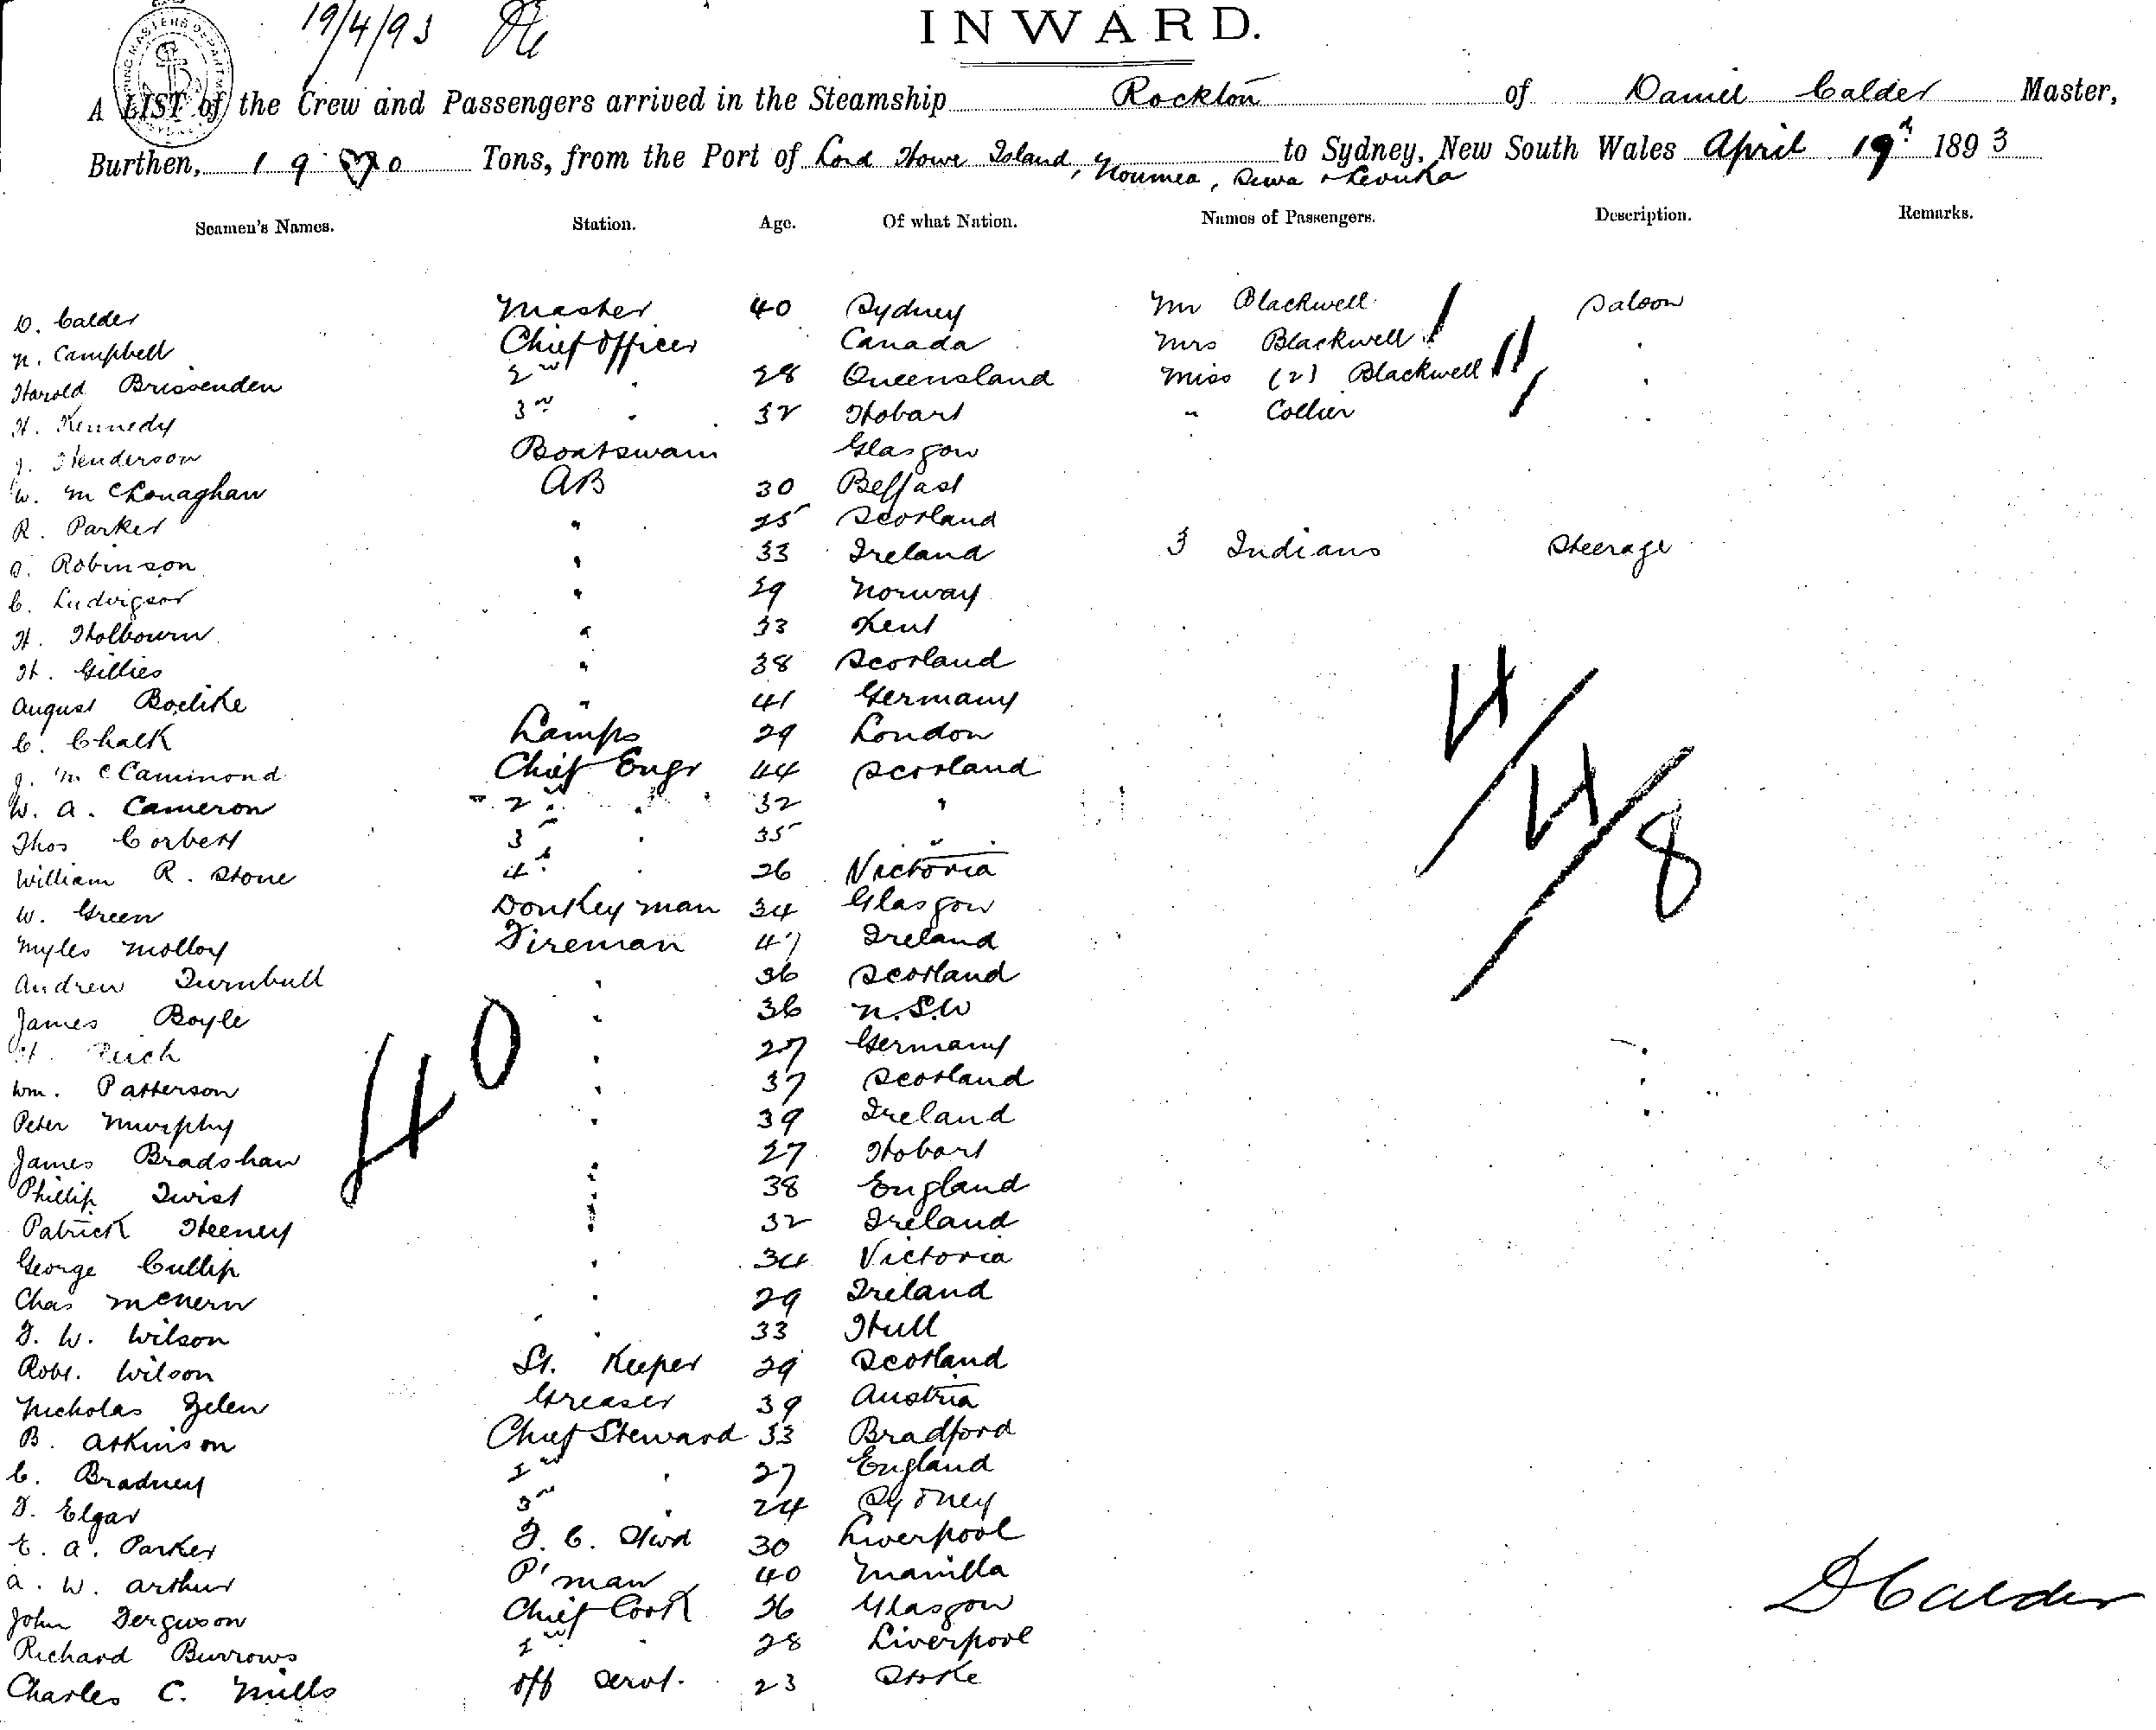 19/4/93
INWARD.
A LIST of the Crew and Passengers arrived in the Steamship Rockton of Daniel Calder Master,
Burthen, 19 Tons, from the Port of Lord Howe Island, Noumea, Suva & Levuka to Sydney, New South Wales April 19th 1893
Seamen's Names. Station. Age. Of what Nation. Names of Passengers. Description. Remarks.
D. Calder Master 40 Sydney Mr Blackwell Saloon
N. Campbell Chief Officer Canada Mrs Blackwell "
Harold Brissenden 2nd " 28 Queensland Miss (2) Blackwell "
H. Kennedy 3rd " 32 Hobart " Collier "
J. Henderson Boatswain Glasgow
W. McLonaghan AB 30 Belfast
R. Parker " 25 Scotland
A. Robinson " 33 Ireland 3 Indians Steerage
C. Ludvigsen " 29 Norway
H. Holbourn " 33 Kent
H. Gillies " 38 Scotland
August Boelike " 41 Germany
C. Chalk Lamps 29 London
J. McCammond Chief Engr 44 Scotland
W. A. Cameron 2nd " 32 "
Thos Corbett 3rd " 35 "
William R. Stone 4th " 26 Victoria
W. Green Donkeyman 34 Glasgow
Myles Molloy Fireman 47 Ireland
Andrew Turnbull " 36 Scotland
James Boyle " 36 N.S.W
H. Reich " 27 Germany
Wm. Patterson " 37 Scotland
Peter Murphy " 39 Ireland
James Bradshaw " 27 Hobart
Phillip Twist " 38 England
Patrick Heeney " 32 Ireland
George Cullip " 34 Victoria
Chas McNern " 29 Ireland
F. W. Wilson " 33 Hull
Robt. Wilson St. Keeper 29 Scotland
Nicholas Zelen Greaser 39 Austria
B. Atkinson Chief Steward 33 Bradford
C. Bradney 2nd " 27 England
F. Elgar 3rd " 24 Sydney
E. A. Parker F. C. Stwd 30 Liverpool
A. W. Arthur P'man 40 Manilla
John Ferguson Chief Cook 36 Glasgow
Richard Burrows 2nd " 28 Liverpool
Charles C. Mills Off Servt. 23 Stoke
40
4/4/8
D Calder